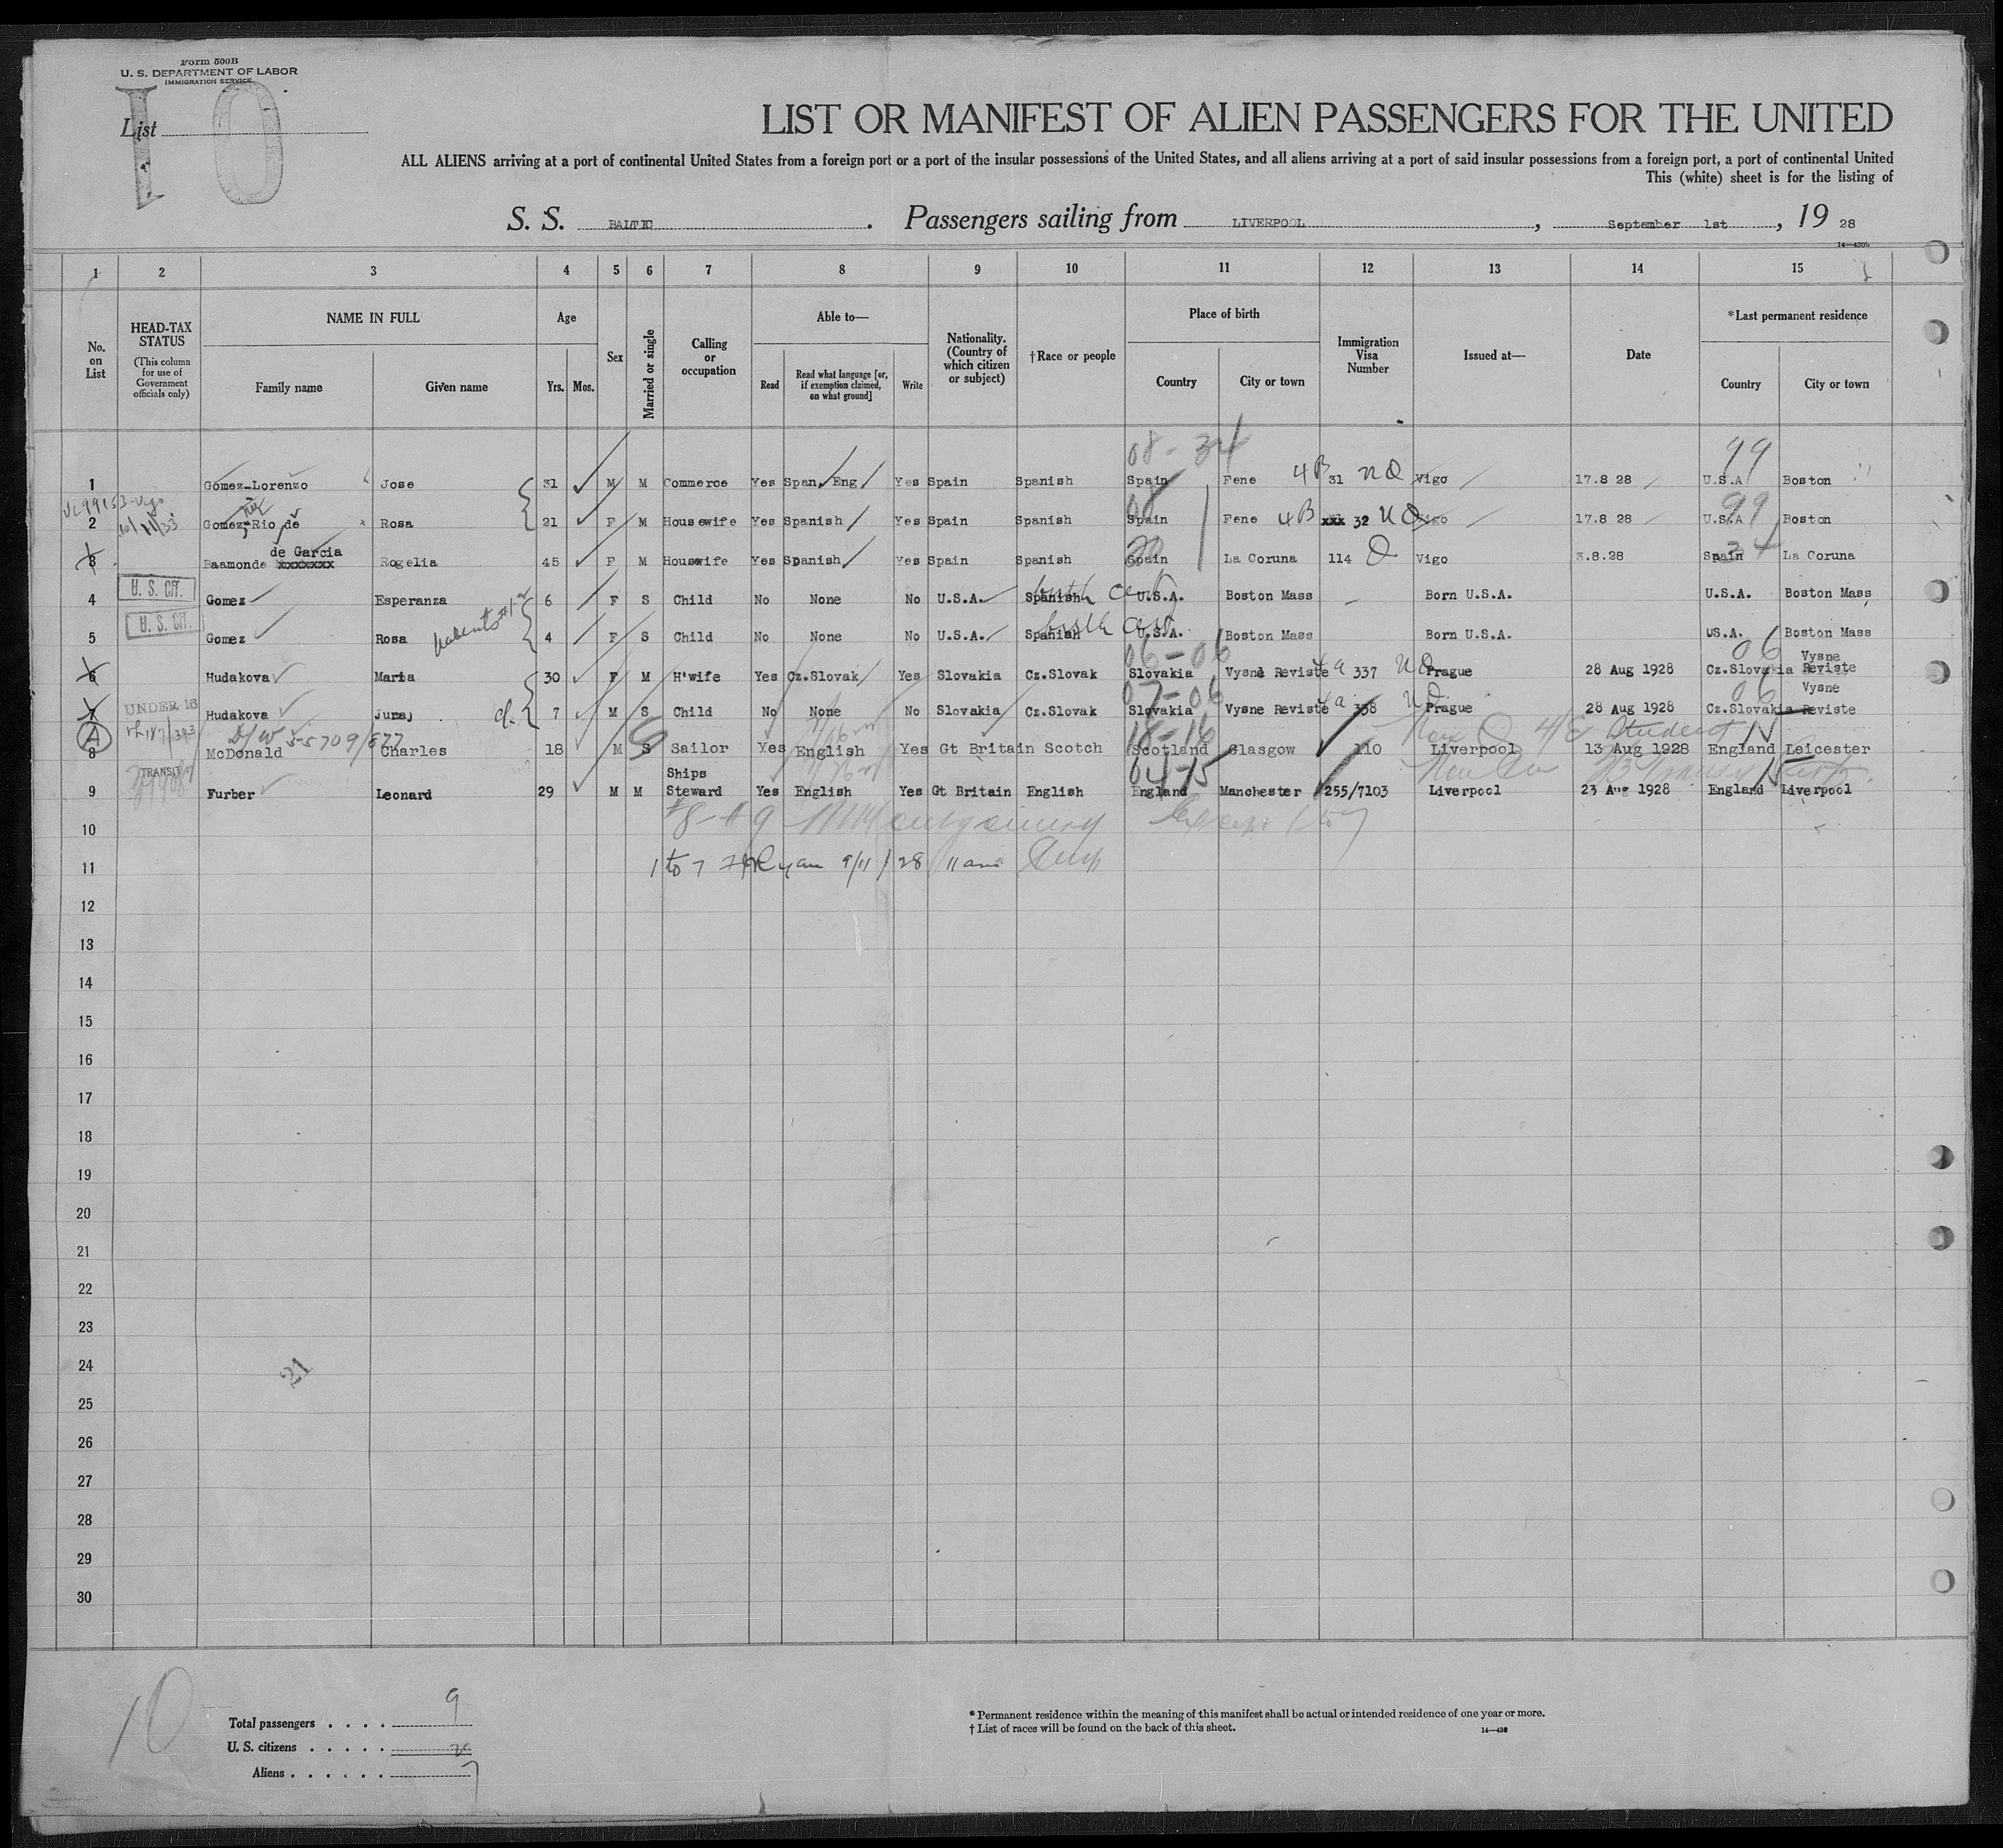 Form 500B
U. S. DEPARTMENT OF LABOR
IMMIGRATION SERVICE
List
10
LIST OR MANIFEST OF ALIEN PASSENGERS FOR THE UNITED
ALL ALIENS arriving at a port of continental United States from a foreign port or a port of the insular possessions of the United States, and all aliens arriving at a port of said insular possessions from a foreign port, a port of continental United
This (white) sheet is for the listing of
S. S. BALTIC. Passengers sailing from LIVERPOOL, September 1st, 19 28
14—430b
1 2 3 4 5 6 7 8 9 10 11 12 13 14 15
No. on List
HEAD-TAX STATUS
(This column for use of Government officials only)
NAME IN FULL
Family name Given name
Age
Yrs. Mos.
Sex
Married or single
Calling or occupation
Able to—
Read Read what language [or, if exemption claimed, on what ground] Write
Nationality. (Country of which citizen or subject)
†Race or people
Place of birth
Country City or town
Immigration Visa Number
Issued at—
Date
*Last permanent residence
Country City or town
08 - 34 99
1 Gomez-Lorenzo Jose 31 M M Commerce Yes Span. Eng Yes Spain Spanish Spain Fene 4B 31 NQ Vigo 17.8 28 U.S.A Boston
2 Gomez-Rio de Rosa 21 F M Housewife Yes Spanish Yes Spain Spanish Spain Fene 4B xxx 32 NQ Vigo 17.8 28 U.S.A Boston
de Garcia
3 Baamonde xxxxxxx Rogelia 45 F M Housewife Yes Spanish Yes Spain Spanish Spain La Coruna 114 Q Vigo 3.8.28 Spain La Coruna
U. S. CIT.
4 Gomez Esperanza 6 F S Child No None No U.S.A. Spanish birth cert U.S.A. Boston Mass Born U.S.A. U.S.A. Boston Mass
U. S. CIT.
5 Gomez Rosa parents #1-2 4 F S Child No None No U.S.A. Spanish birth cert U.S.A. Boston Mass Born U.S.A. US.A. Boston Mass
06-06 06 Vysne
6 Hudakova Maria 30 F M H'wife Yes Cz.Slovak Yes Slovakia Cz.Slovak Slovakia Vysne Reviste 4a 337 NQ Prague 28 Aug 1928 Cz.Slovakia Reviste
UNDER 16 07-06 06 Vysne
7 Hudakova Juraj 7 M S Child No None No Slovakia Cz.Slovak Slovakia Vysne Reviste 4a 338 NQ Prague 28 Aug 1928 Cz.Slovakia Reviste
18-16 Non Q 4E Student
8 McDonald Charles 18 M S Sailor Yes English Yes Gt Britain Scotch Scotland Glasgow 110 Liverpool 13 Aug 1928 England Leicester
TRANSIT Ships 04-15 15
9 Furber Leonard 29 M M Steward Yes English Yes Gt Britain English England Manchester 255/7103 Liverpool 23 Aug 1928 England Liverpool
10 #8-#9 Montgomery
11 1 to 7 Ryan 9/11/28 11am Insp
12
13
14
15
16
17
18
19
20
21
22
23
24
21
25
26
27
28
29
30
10
Total passengers . . . . 9
U. S. citizens . . . . .
Aliens . . . . . . 7
* Permanent residence within the meaning of this manifest shall be actual or intended residence of one year or more.
† List of races will be found on the back of this sheet.
14—430